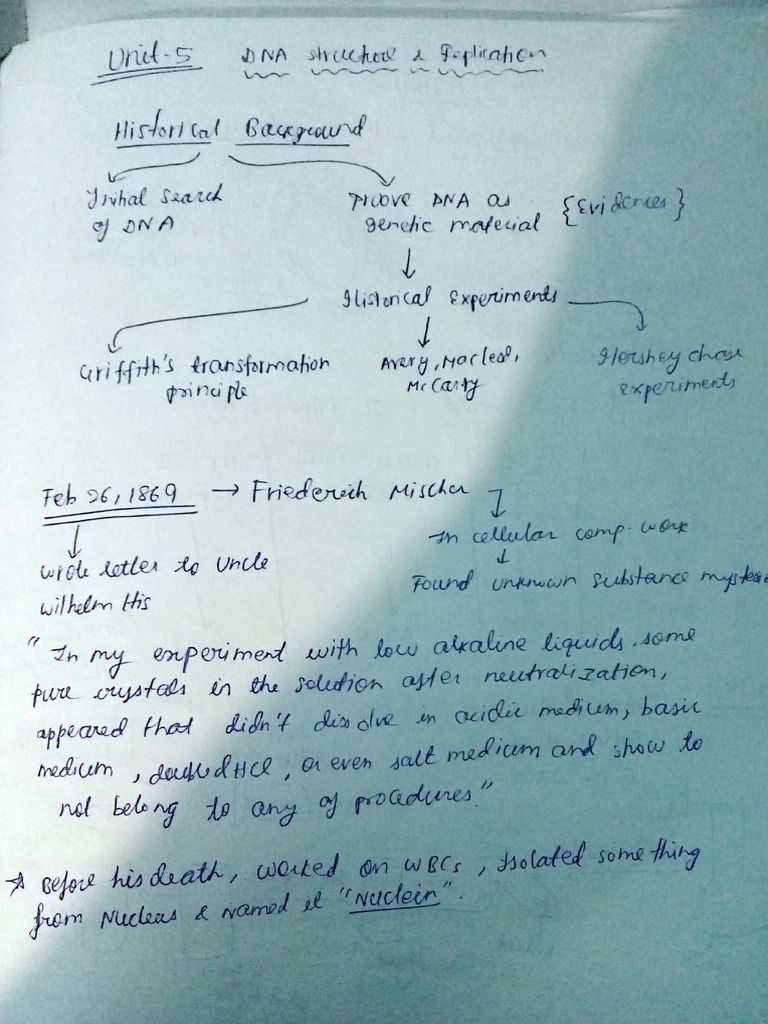 Unit-5 DNA structure & Replication
Historical Background
Initial search
of DNA
Prove DNA as
genetic material {Evidences}
Historical Experiments
Griffith's transformation
principle
Avery, Macleod,
McCarty
Hershey chase
experiments
Feb 26, 1869 → Friederich Mischer
In cellular comp. work
wrote letter to uncle
Wilhelm His
Found unknown substance
"In my experiment with low alkaline liquids, some
pure crystals in the solution after neutralization,
appeared that didn't dissolve in acidic medium, basic
medium, HCl, or even salt medium and show to
not belong to any of procedures."
Before his death, worked on WBCs, isolated something
from Nucleus & Named it "Nuclein".